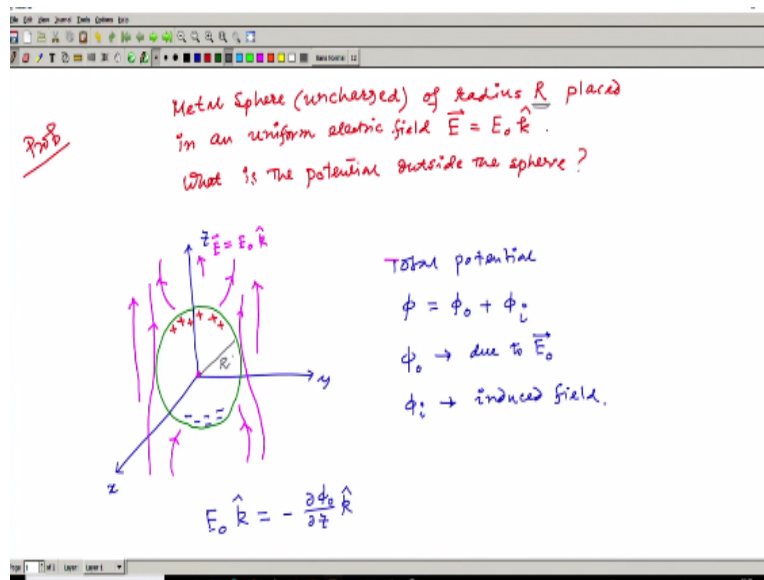 File Edit View Journal Tools Options Help
Prob
Metal Sphere (uncharged) of radius R placed
in an uniform electric field \vec{E} = E₀ \hat{k} .
What is the potential outside the sphere ?
z \vec{E} = E₀ \hat{k}
+ + + + + +
R
y
- - - -
x
Total potential
ϕ = ϕ₀ + ϕᵢ
ϕ₀ → due to \vec{E}₀
ϕᵢ → induced field.
E₀ \hat{k} = - ∂ϕ₀/∂z \hat{k}
Page 1 of 1 Layer: Layer 1